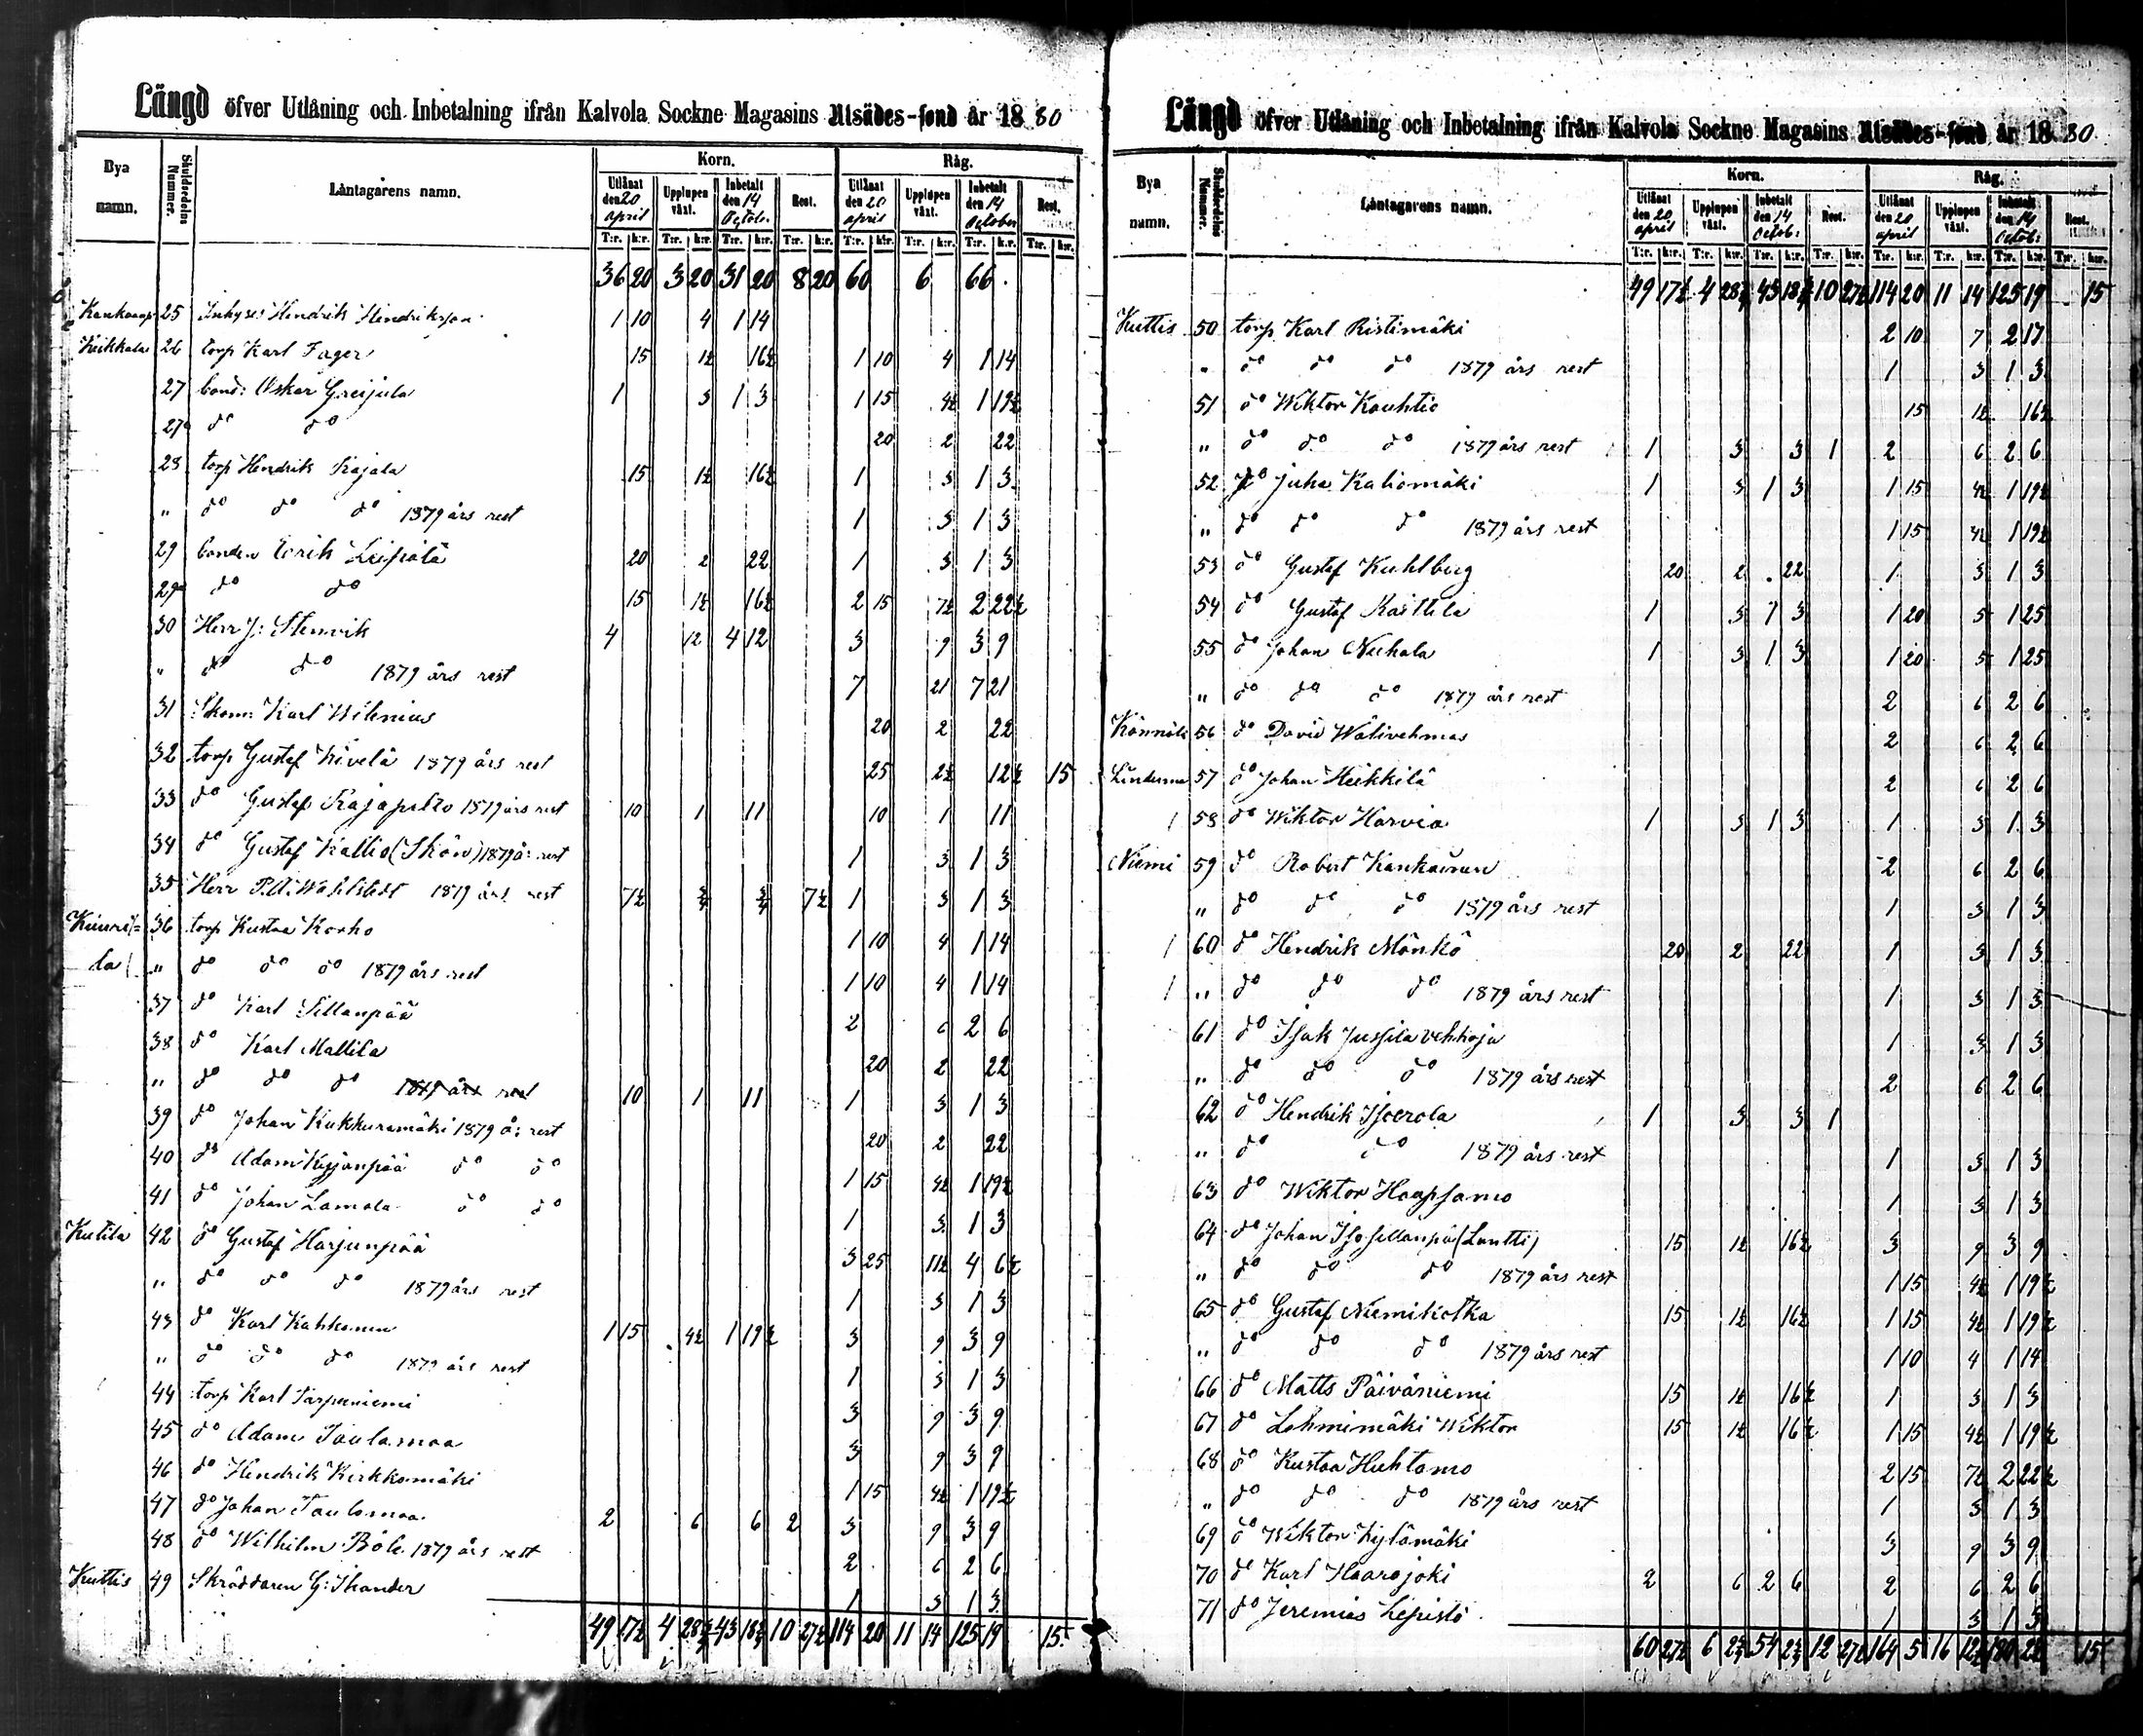 Längd öfver Utlåning och Inbetalning ifrån Kalvola Sockne Magasins Utsädes-fond år 1880
Bya namn. Skuldsedelns Nummer. Låntagarens namn. Korn. Råg.
Utlånat den 20 april Upplupen växt. Inbetalt den 14 Octob: Rest. Utlånat den 20 april Upplupen växt. Inbetalt den 14 October Rest.
T:r. k:r. T:r. k:r. T:r. k:r. T:r. k:r. T:r. k:r. T:r. k:r. T:r. k:r. T:r. k:r.
36 20 3 20 31 20 8 20 60 6 66
25 Inhyses Hendrik Hendriksson 1 10 4 1 14
26 torp Karl Fager 15 1½ 16½ 1 10 4 1 14
27 bond: Oskar Greijula 1 3 1 3 1 15 4½ 1 19½
27 do do 20 2 22
28 torp Hendrik Rajala 15 1½ 16½ 1 3 1 3
" do do do 1879 års rest 1 3 1 3
29 bonden Eerik Leipälä 20 2 22 1 3 1 3
29 do do 15 1½ 16½ 2 15 7½ 2 22½
30 Herr J: Stenvik 4 12 4 12 3 9 3 9
" do do 1879 års rest 7 21 7 21
31 Skom: Karl Wilenius 20 2 22
32 torp Gustaf Kivelä 1879 års rest 25 2½ 12½ 15
33 do Gustaf Rajapelto 1879 års rest 10 1 11 10 1 11
34 do Gustaf Kallio (Skön) 1879 å: rest 1 3 1 3
35 Herr P.A. Wahlstedt 1879 års rest 7½ ¾ ¾ 7½ 1 3 1 3
36 torp Kustaa Korho 1 10 4 1 14
" do do do 1879 års rest 1 10 4 1 14
37 do Karl Sillanpää 2 6 2 6
38 do Karl Mattila 20 2 22
" do do do 1879 års rest 10 1 11 1 3 1 3
39 do Johan Kukkuramäki 1879 å: rest 20 2 22
40 do Adam do do 1 15 4½ 1 19½
41 do Johan Lamala do do 1 3 1 3
Kutila 42 do Gustaf Harjunpää 3 25 11½ 4 6½
" do do do 1879 års rest 1 3 1 3
43 do Karl Kahkonen 1 15 4½ 1 19½ 3 9 3 9
" do do do 1879 års rest 1 3 1 3
44 torp Karl Tarpeeniemi 3 9 3 9
45 do Adam Taulamaa 3 9 3 9
46 do Hendrik Kirkkomäki 1 15 4½ 1 19½
47 do Johan Taulamaa 2 6 6 2 3 9 3 9
48 do Wilhelm Böle 1879 års rest 2 6 2 6
Kuttis 49 Skräddaren G: Skander 1 3 1 3
49 17½ 4 28¾ 43 18¾ 10 27½ 114 20 11 14 125 19 15
Längd öfver Utlåning och Inbetalning ifrån Kalvola Sockne Magasins Utsädes-fond år 1880
Bya namn. Skuldsedelns Nummer. Låntagarens namn. Korn. Råg.
Utlånat den 20 april Upplupen växt. Inbetalt den 14 Octob: Rest. Utlånat den 20 april Upplupen växt. Inbetalt den 14 Octob: Rest.
T:r. k:r. T:r. k:r. T:r. k:r. T:r. k:r. T:r. k:r. T:r. k:r. T:r. k:r. T:r. k:r.
49 17½ 4 28¾ 43 18¾ 10 27½ 114 20 11 14 125 19 15
Kuttis 50 torp Karl Ristimäki 2 10 7 2 17
" do do do 1879 års rest 1 3 1 3
51 do Wiktor Kouhtio 15 1½ 16½
" do do do 1879 års rest 1 3 3 1 2 6 2 6
52 do Juha Kaliomäki 1 3 1 3 1 15 4½ 1 19½
" do do do 1879 års rest 1 15 4½ 1 19½
53 do Gustaf Kuhlberg 20 2 22 1 3 1 3
54 do Gustaf Raittila 1 3 1 3 1 20 5 1 25
55 do Johan Nuhala 1 3 1 3 1 20 5 1 25
" do do do 1879 års rest 2 6 2 6
Könnölä 56 do David Wälivehmas 2 6 2 6
57 do Johan Heikkilä 2 6 2 6
58 do Wiktor Harvia 1 3 1 3 1 3 1 3
Niemi 59 do Robert Kankainen 2 6 2 6
" do do do 1879 års rest 1 3 1 3
60 do Hendrik Mönkö 20 2 22 1 3 1 3
" do do do 1879 års rest 1 3 1 3
61 do Isak Jussila vehhoja 1 3 1 3
" do do do 1879 års rest 2 6 2 6
62 do Hendrik Isoerola 1 3 3 1
" do do 1879 års rest 1 3 1 3
63 do Wiktor Haapsamo 1 3 1 3
64 do Johan Isosillanpä (Lantti) 15 1½ 16½ 3 9 3 9
" do do do 1879 års rest 1 15 4½ 1 19½
65 do Gustaf Niemikotka 15 1½ 16½ 1 15 4½ 1 19½
" do do do 1879 års rest 1 10 4 1 14
66 do Matts Päiväniemi 15 1½ 16½ 1 3 1 3
67 do Lehmimäki Wiktor 15 1½ 16½ 1 15 4½ 1 19½
68 do Kustaa Huhtamo 2 15 7½ 2 22½
" do do do 1879 års rest 1 3 1 3
69 do Wiktor Kylämäki 3 9 3 9
70 do Karl Haarajoki 2 6 2 6 2 6 2 6
71 do Jeremias Lepistö 1 3 1 3
60 27½ 6 2¾ 54 2¾ 12 27½ 164 5 16 12½ 180 2½ 15